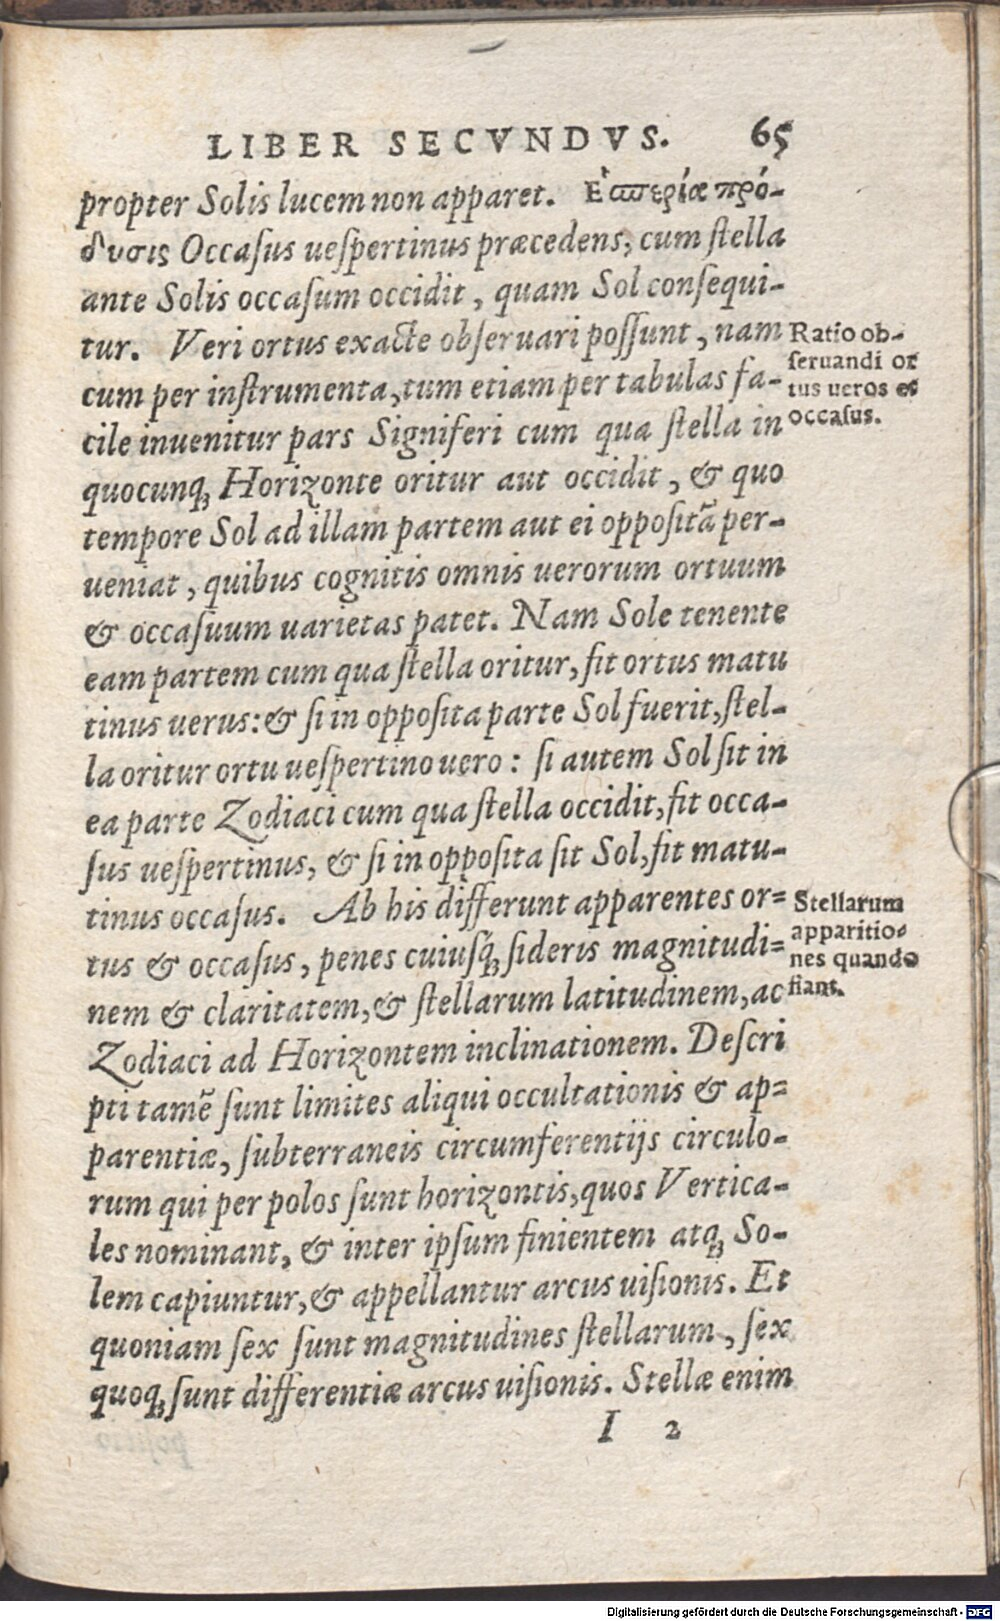 LIBER SECVNDVS. 65
propter Solis lucem non apparet. Ἑσπερία πρό-
δυσις Occasus uespertinus præcedens, cum stella
ante Solis occasum occidit, quam Sol consequi-
tur. Veri ortus exacte obseruari possunt, nam
cum per instrumenta, tum etiam per tabulas fa-
cile inuenitur pars Signiferi cum qua stella in
quocunq; Horizonte oritur aut occidit, & quo
tempore Sol ad illam partem aut ei oppositã per-
ueniat, quibus cognitis omnis uerorum ortuum
& occasuum uarietas patet. Nam Sole tenente
eam partem cum qua stella oritur, fit ortus matu
tinus uerus: & si in opposita parte Sol fuerit, stel-
la oritur ortu uespertino uero: si autem Sol sit in
ea parte Zodiaci cum qua stella occidit, fit occa-
sus uespertinus, & si in opposita sit Sol, fit matu-
tinus occasus. Ab his differunt apparentes or-
tus & occasus, penes cuiusq́; sideris magnitudi-
nem & claritatem, & stellarum latitudinem, ac
Zodiaci ad Horizontem inclinationem. Descri
pti tamẽ sunt limites aliqui occultationis & ap-
parentiæ, subterraneis circumferentijs circulo-
rum qui per polos sunt horizontis, quos Vertica-
les nominant, & inter ipsum finientem atq; So-
lem capiuntur, & appellantur arcus uisionis. Et
quoniam sex sunt magnitudines stellarum, sex
quoq; sunt differentiæ arcus uisionis. Stellæ enim
I 2
Ratio ob-
seruandi or
tus ueros et
occasus.
Stellarum
apparitio-
nes quando
fiant.
Digitalisierung gefördert durch die Deutsche Forschungsgemeinschaft - DFG